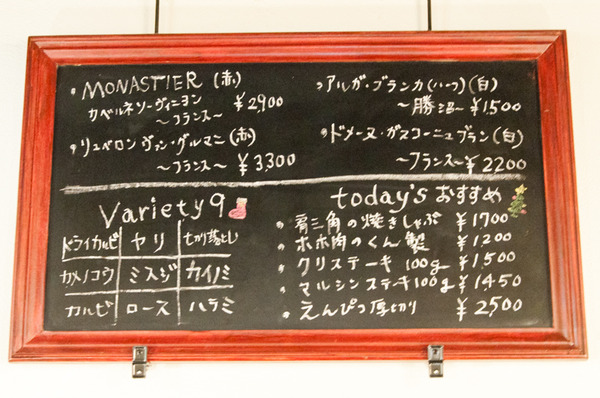 ・MONASTIER (赤)
カベルネソーヴィニヨン
〜フランス〜 ¥2,900
・リュベロン ヴァン・グルマン (赤)
〜フランス〜 ¥3,300
・アルガ・ブランカ(ハーフ)(白)
〜勝沼〜 ¥1,500
・ドメーヌ・ガスコーニュブラン(白)
〜フランス〜 ¥2200
Variety9
ドライカルビ ヤリ 切り落とし
カメノコウ ミスジ カイノミ
カルビ ロース ハラミ
today's おすすめ
・肩三角の焼きしゃぶ ¥1700
・ホホ肉のくん製 ¥1200
・クリステーキ100g ¥1,500
・マルシンステーキ100g ¥1450
・えんぴつ厚切り ¥2,500